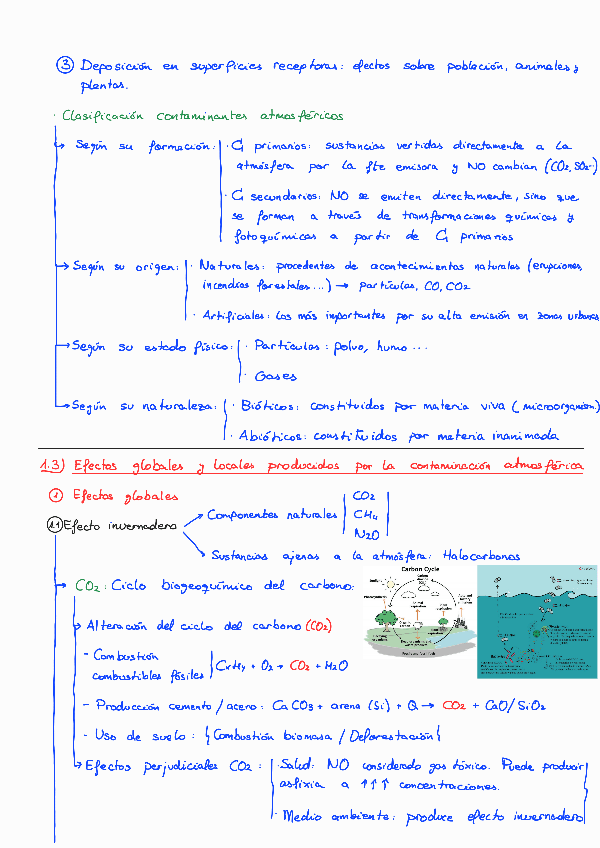 ③ Deposición en superficies receptoras: efectos sobre población, animales y
plantas.
· Clasificación contaminantes atmosféricos
→ Según su formación: · C₁ primarios: sustancias vertidas directamente a la
atmósfera por la fte emisora y NO cambian (CO2, SO2..)
· C₁ secundarios: NO se emiten directamente, sino que
se forman a través de transformaciones químicas y
fotoquímicas a partir de C₁ primarios
→ Según su origen: · Naturales: procedentes de acontecimientos naturales (erupciones,
incendios forestales...) → partículas, CO, CO2
· Artificiales: Las más importantes por su alta emisión en zonas urbanas
→ Según su estado físico: · Partículas: polvo, humo ...
· Gases
→ Según su naturaleza: · Bióticos: constituidos por materia viva (microorganism.)
· Abióticos: constituidos por materia inanimada
1.3) Efectos globales y locales producidos por la contaminación atmosférica
① Efectos globales
1.1 Efecto invernadero → Componentes naturales | CO2
CH4
N2O
→ Sustancias ajenas a la atmósfera: Halocarbonos
→ CO2: Ciclo biogeoquímico del carbono:
Carbon Cycle
→ Alteración del ciclo del carbono (CO2)
- Combustión
combustibles fósiles } CxHy + O2 → CO2 + H2O
- Producción cemento/acero: CaCO3 + arena (Si) + Q → CO2 + CaO/SiO2
- Uso de suelo: {Combustión biomasa / Deforestación}
→ Efectos perjudiciales CO2: · Salud: NO considerado gas tóxico. Puede producir
asfixia a ↑↑↑ concentraciones.
· Medio ambiente: produce efecto invernadero